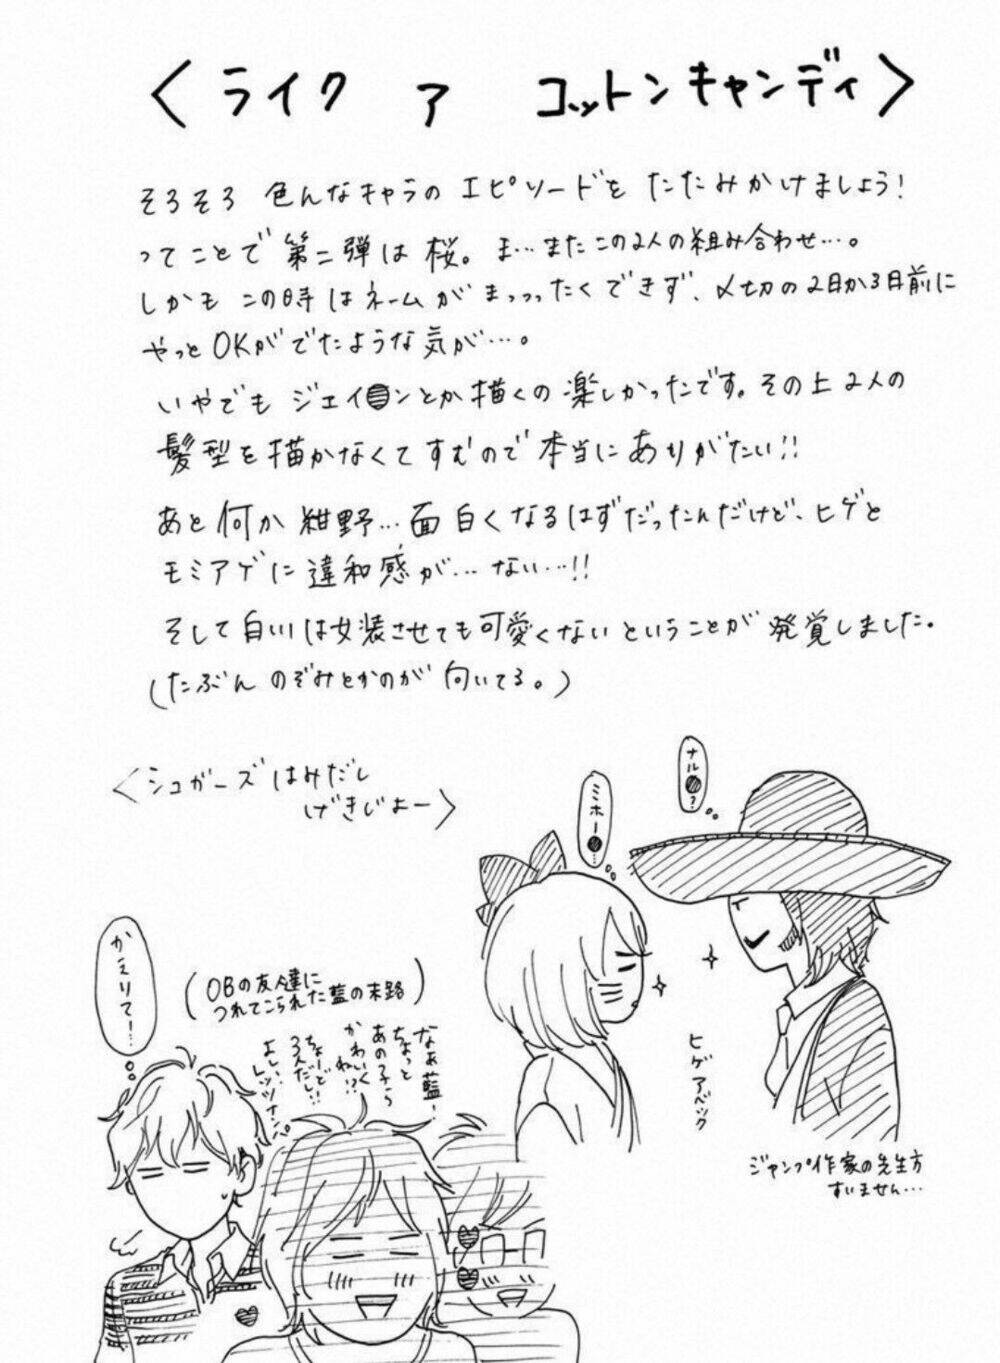 ＜ライク ア コットンキャンディ＞
そろそろ 色んなキャラの エピソードを たたみかけましょう！
ってことで 第二弾は 桜。ま…またこの2人の組み合わせ…。
しかも この時はネームが まっっったくできず、〆切の2日か3日前に
やっとOKがでたような気が…。
いやでも ジェイ●ンとか描くの楽しかったです。その上2人の
髪型を描かなくてすむので本当にありがたい!!
あと何か紺野…面白くなるはずだったんだけど、ヒゲと
モミアゲに違和感が…ない…!!
そして白川は女装させても可愛くないということが発覚しました。
(たぶん のぞみとかのが 向いてる。)
＜シュガーズはみだし
げきじょー＞
ナル●?
ミホー●…
ヒゲアベック
ジャンプ作家の先生方
すいません…
(OBの友人達に
つれてこられた藍の末路)
かえりてー!
なぁ藍!
ちょっと
あの子ら
かわいく
ね!?
ちょーど
3人だし!!
よし、
レッツナンパ。